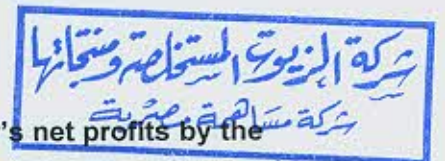 شركة الزيوت المستخلصة ومنتجاتها
شركة مساهمة مصرية
's net profits by the